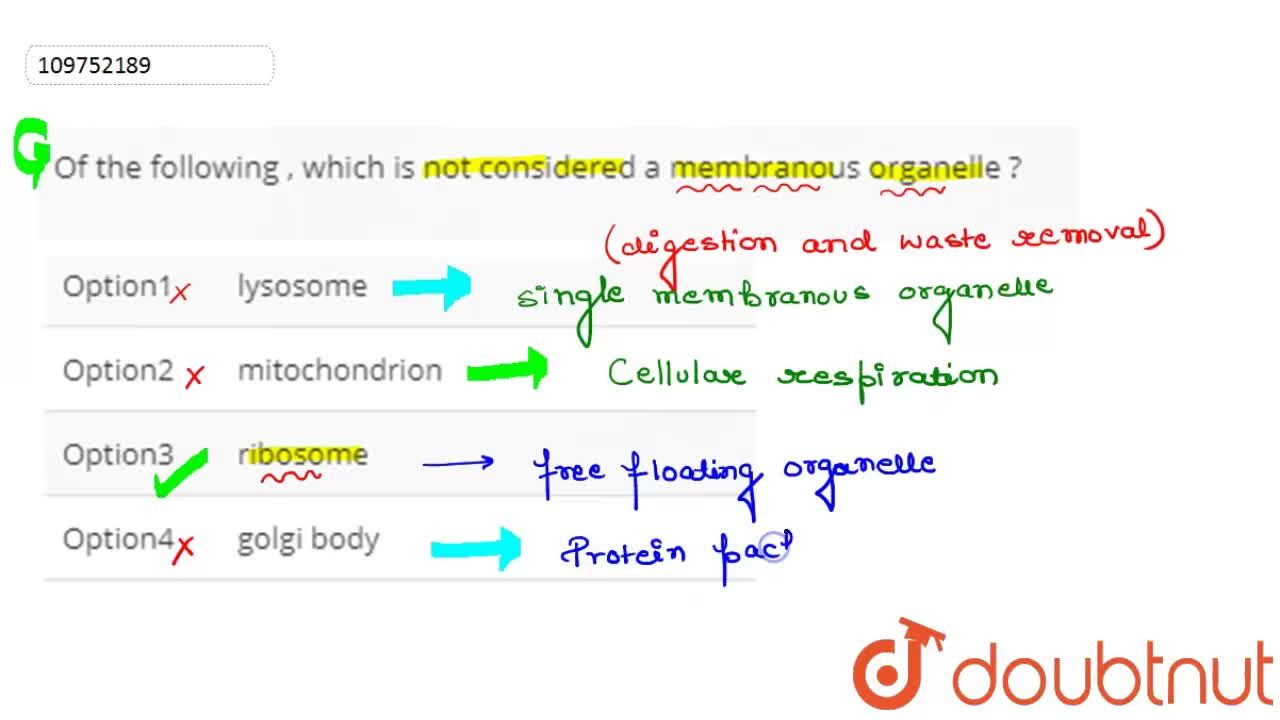 109752189
Q Of the following , which is not considered a membranous organelle ?
(digestion and waste removal)
Option1 x lysosome single membranous organelle
Option2 x mitochondrion Cellular respiration
Option3 ribosome free floating organelle
Option4 x golgi body Protein
doubtnut